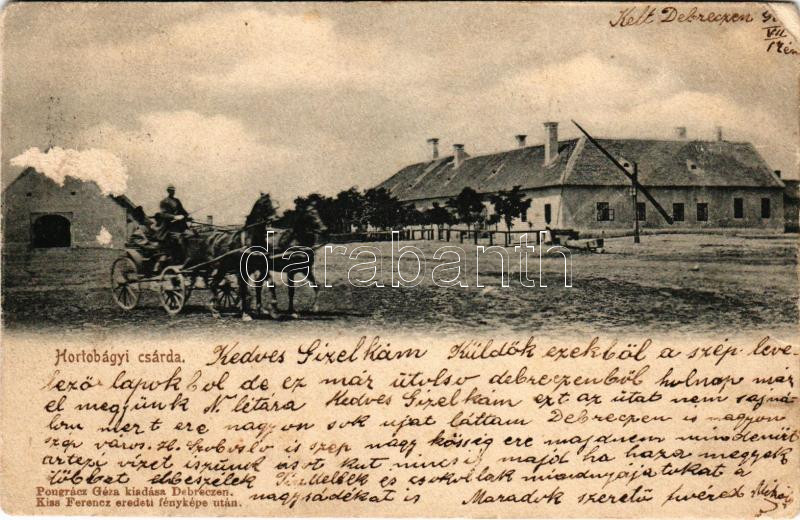 Kelt Debreczen
VII
17én
darabanth
Hortobágyi csárda. Kedves Gizelkám Küldök ezekböl a szép leve-
lezö lapokbol de ez már ütolso debreczenböl holnap már
el megjünk N. létára Kedves Gizelkám ezt az útat nem sajná-
lom mert ere nagyon sok ujat láttam Debreczen is nagyon
szép város. H. Szoboslo is szép nagy kösség ere majdnem mindenüt
artezi vizet iszünk ásot kut nincs majd ha haza megyek
többet elbeszélek és csokollak a
nagysádékat is Maradok szeretö Mihaj
Pongrácz Géza kiadása Debreczen.
Kiss Ferencz eredeti fényképe után.